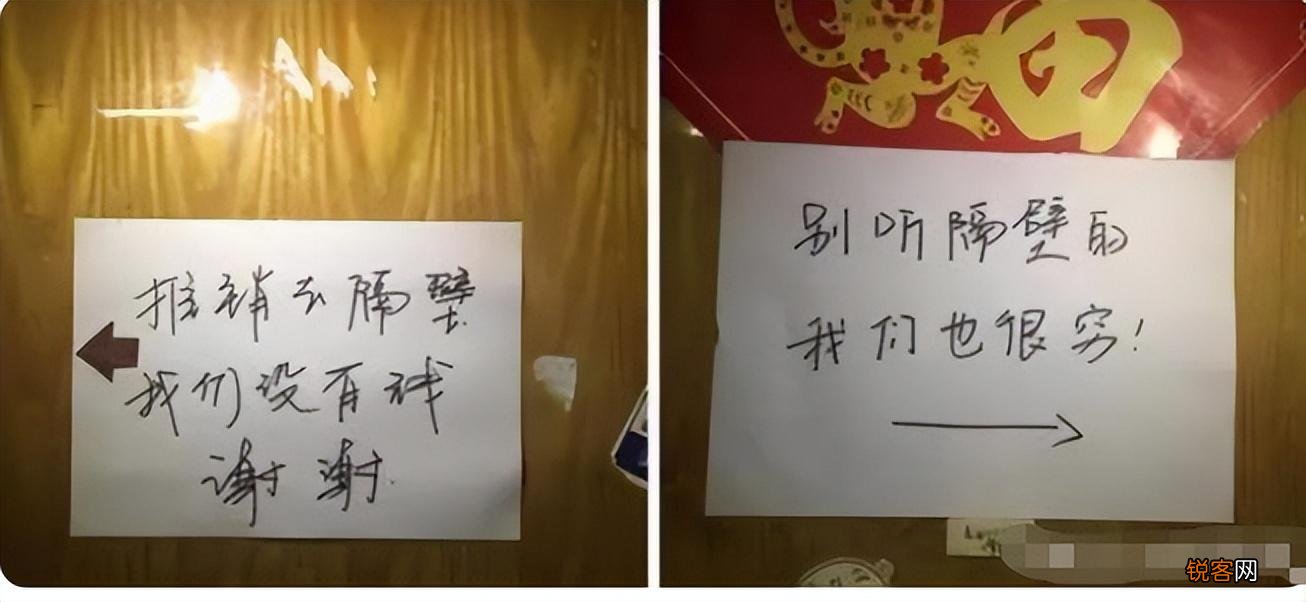 推销去隔壁
我们没有钱
谢谢
别听隔壁的
我们也很穷!
锐客网